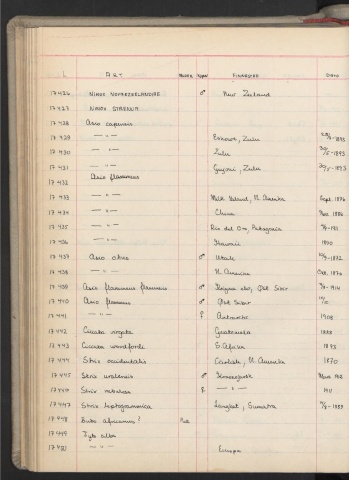 L. ART UNGER GAM. FINNESTED DATO
17426 NINOX NOVAEZEELANDIAE ♂ New Zealand
17427 NINOX STRENUA
17428 Asio capensis
17429 — " — Eshowe, Zulu -1893
17430 — " — Zulu 30/5-1893
17431 — " — Zulu 30/5-1893
17432 Asio flammeus
17433 — " — N. Amerika Sept. 1876
17434 — " — China Nov. 1886
17435 — " — Rio del Oro, Patagonia
17436 — " — 1870
17437 Asio otus ♂ Utah -1872
17438 — " — N. Amerika Oct. 1876
17439 Asio flammeus flammeus ♂ Øst Sibir -1914
17440 Asio flammeus ♂ Øst Sibir
17441 — " — ♀ 1908
17442 Ciccaba virgata Guatemala 1888
17443 Ciccaba woodfordi S. Afrika 1893
17444 Strix occidentalis N. Amerika 1870
17445 Strix uralensis ♂ Krasnojarsk
17446 Strix nebulosa ♀ — " — 1911
17447 Strix leptogrammica Langkat, Sumatra
17448 Bubo africanus?
17449 Tyto alba
17450 — " — Europa